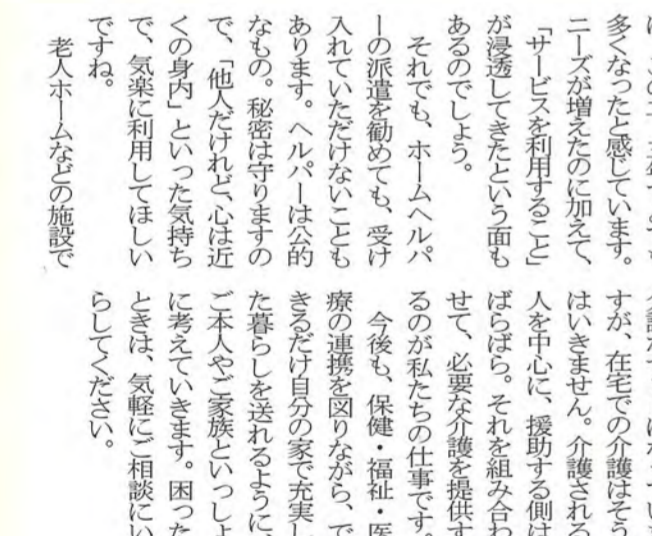 多くなったと感じています。
ニーズが増えたのに加えて、
「サービスを利用すること」
が浸透してきたという面も
あるのでしょう。
それでも、ホームヘルパ
ーの派遣を勧めても、受け
入れていただけないことも
あります。ヘルパーは公的
なもの。秘密は守りますの
で、「他人だけれど、心は近
くの身内」といった気持ち
で、気楽に利用してほしい
ですね。
老人ホームなどの施設で
すが、在宅での介護はそう
はいきません。介護される
人を中心に、援助する側は
ばらばら。それを組み合わ
せて、必要な介護を提供す
るのが私たちの仕事です。
今後も、保健・福祉・医
療の連携を図りながら、で
きるだけ自分の家で充実し
た暮らしを送れるように、
ご本人やご家族といっしょ
に考えていきます。困った
ときは、気軽にご相談にい
らしてください。